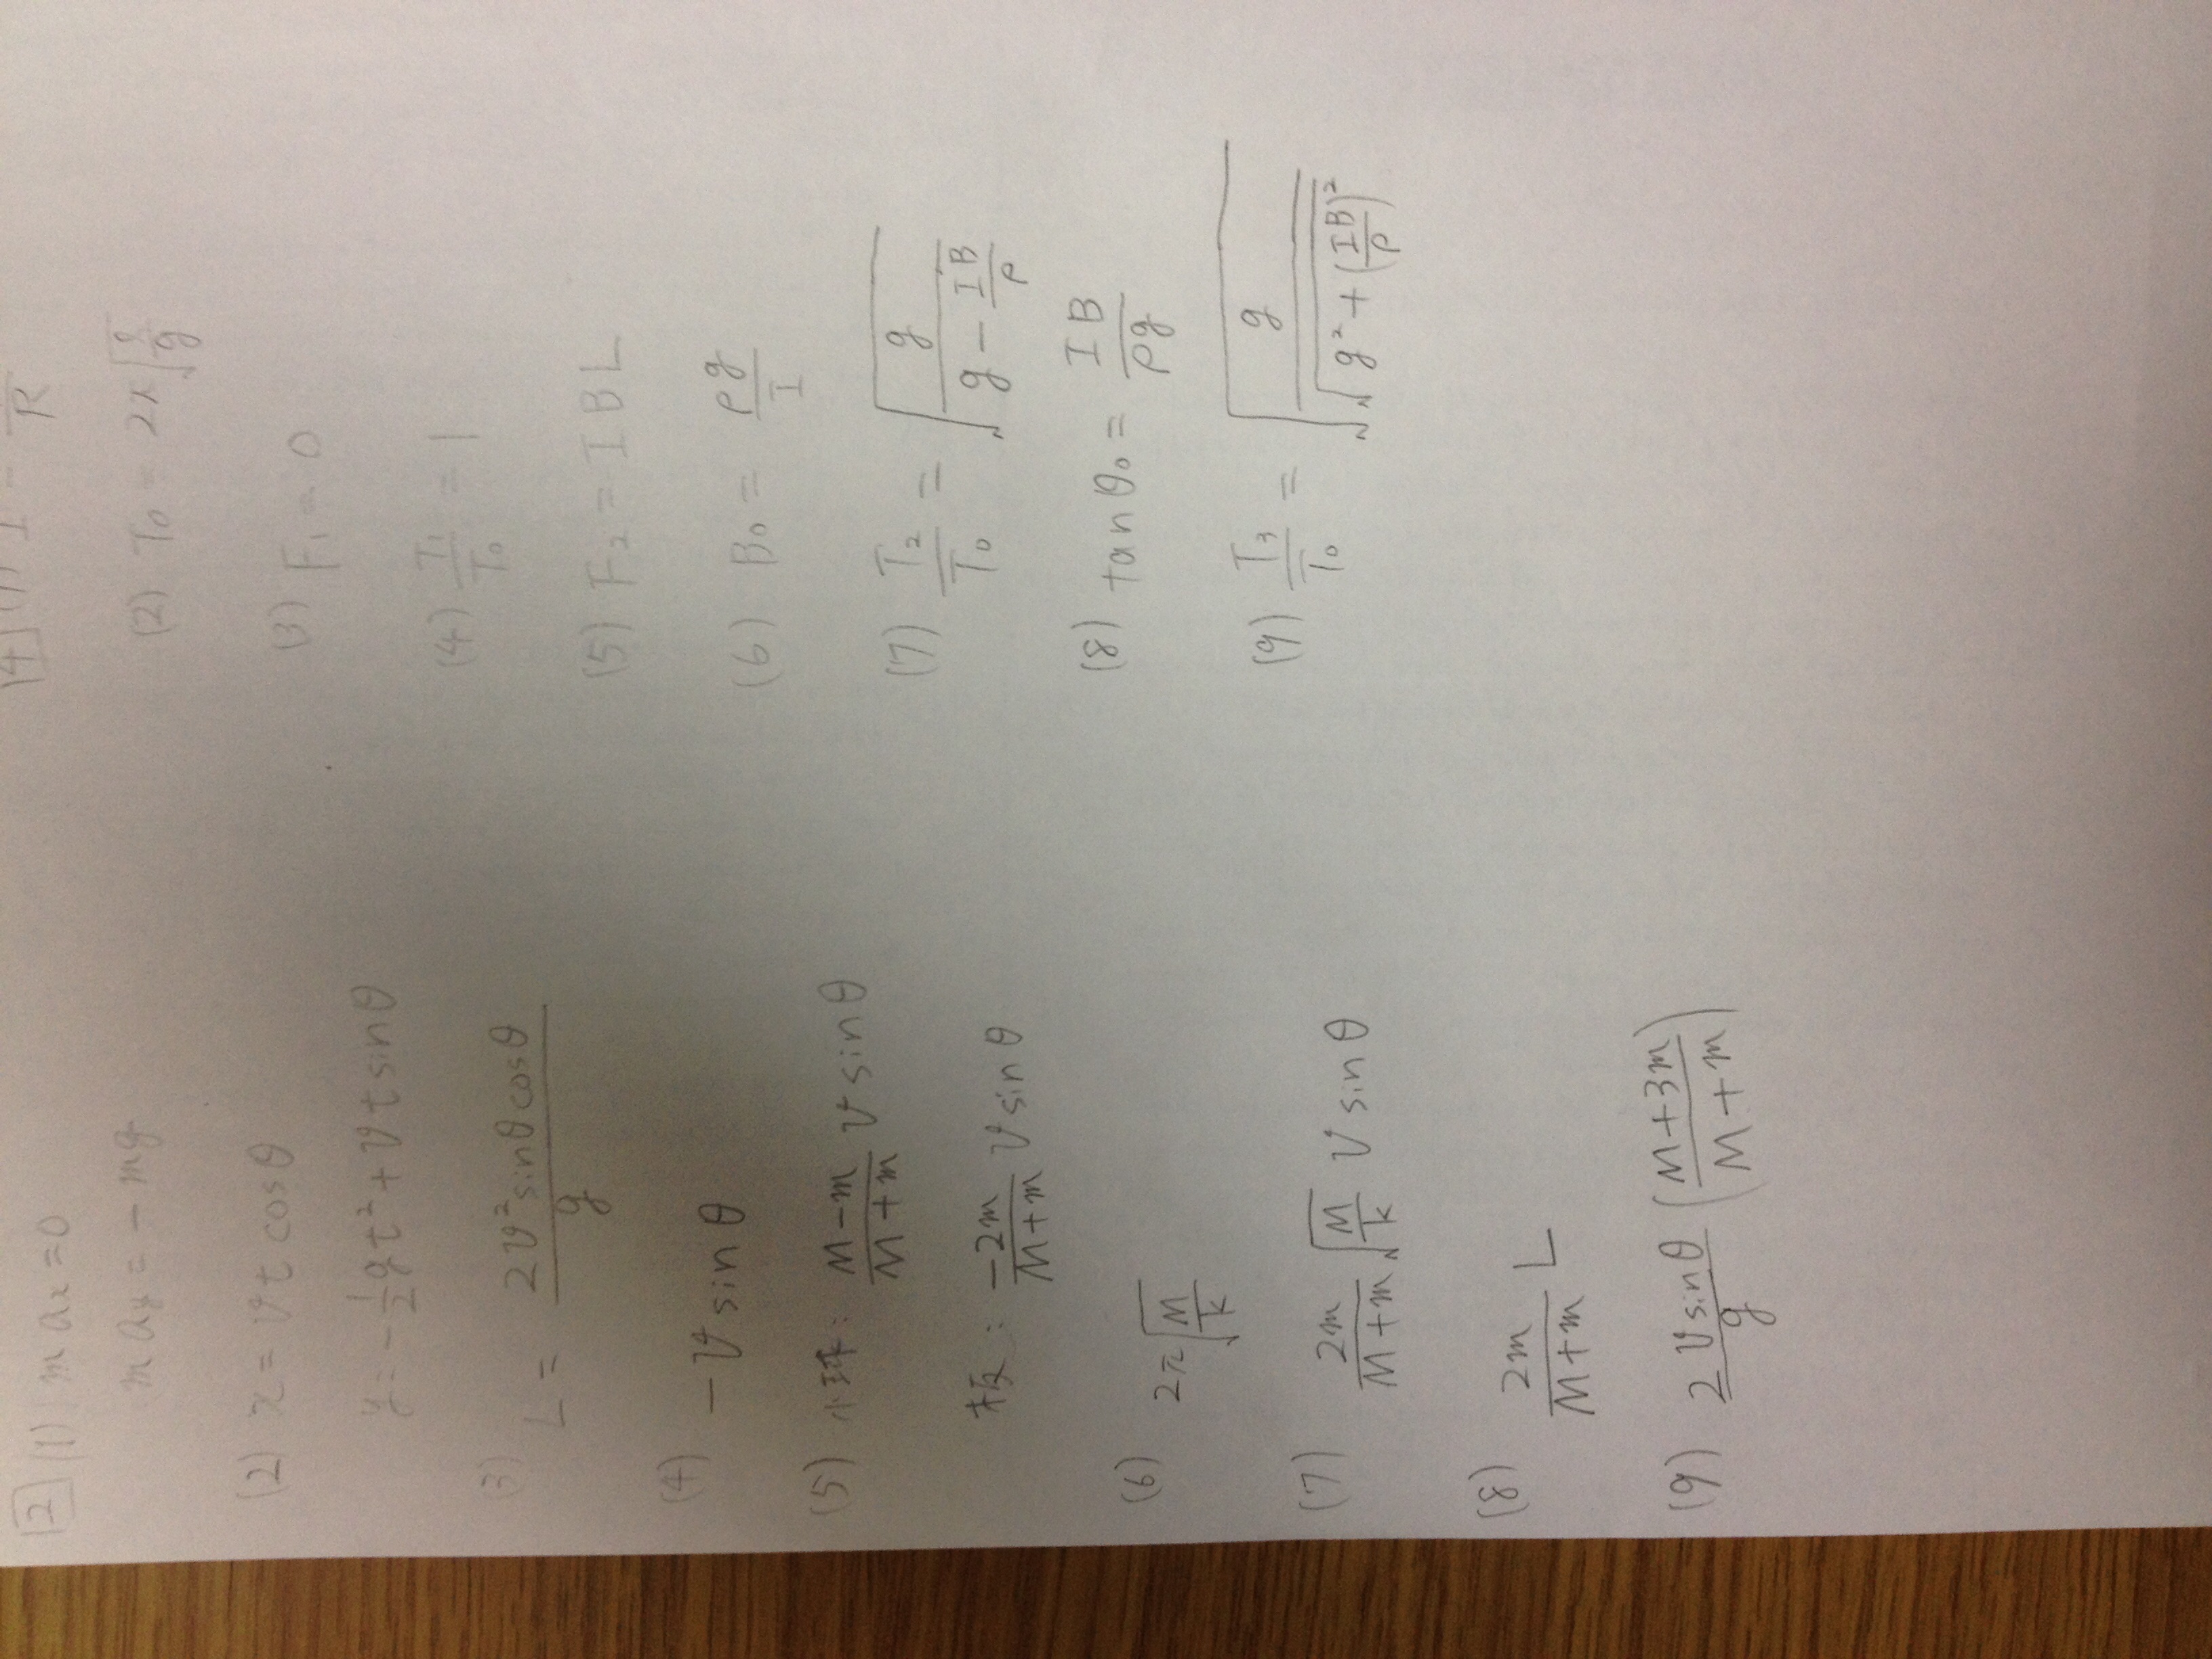 [2] (1) m a_x = 0
m a_y = - mg
(2) x = v t cosθ
y = - 1/2 g t² + v t sinθ
(3) L = 2v² sinθ cosθ / g
(4) - v sinθ
(5) 小球: (M-m)/(M+m) v sinθ
板: (-2m)/(M+m) v sinθ
(6) 2π√(M/k)
(7) 2m/(M+m) √(M/k) v sinθ
(8) 2m/(M+m) L
(9) 2 v sinθ / g ((M+3m)/(M+m))
[4] (1) I =
(2) T₀ = 2π√(l/g)
(3) F₁ = 0
(4) T₁/T₀ = 1
(5) F₂ = I B L
(6) B₀ = ρg/I
(7) T₂/T₀ = √(g/(g - IB/ρ))
(8) tanθ₀ = IB/ρg
(9) T₃/T₀ = √(g/√(g² + (IB/ρ)²))